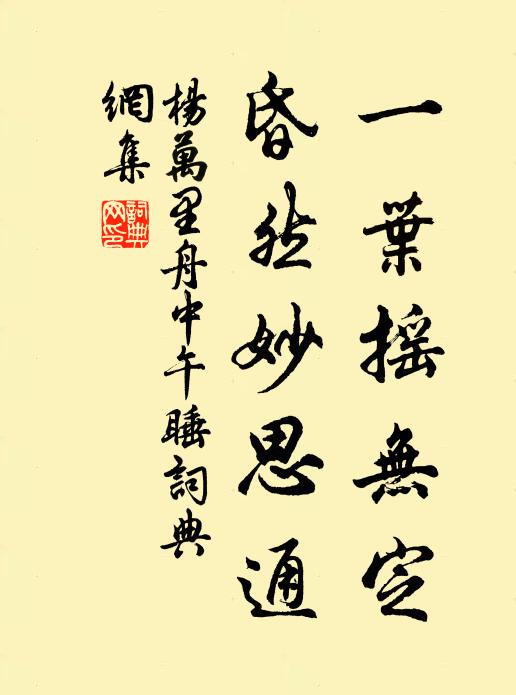 一葉搖無定
昏然妙思通
楊萬里舟中午睡詞典
網集
詞典
网印